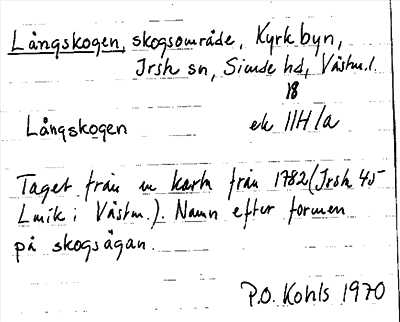 Långskogen, skogsområde, Kyrkbyn,
Irsk sn, Simde hd, Västm.l.
18
Långskogen ek 11H/a
Taget från en karta från 1782 (Irsk 45
Lmik i Västm.). Namn efter formen
på skogsägan.
P.O. Kohls 1970